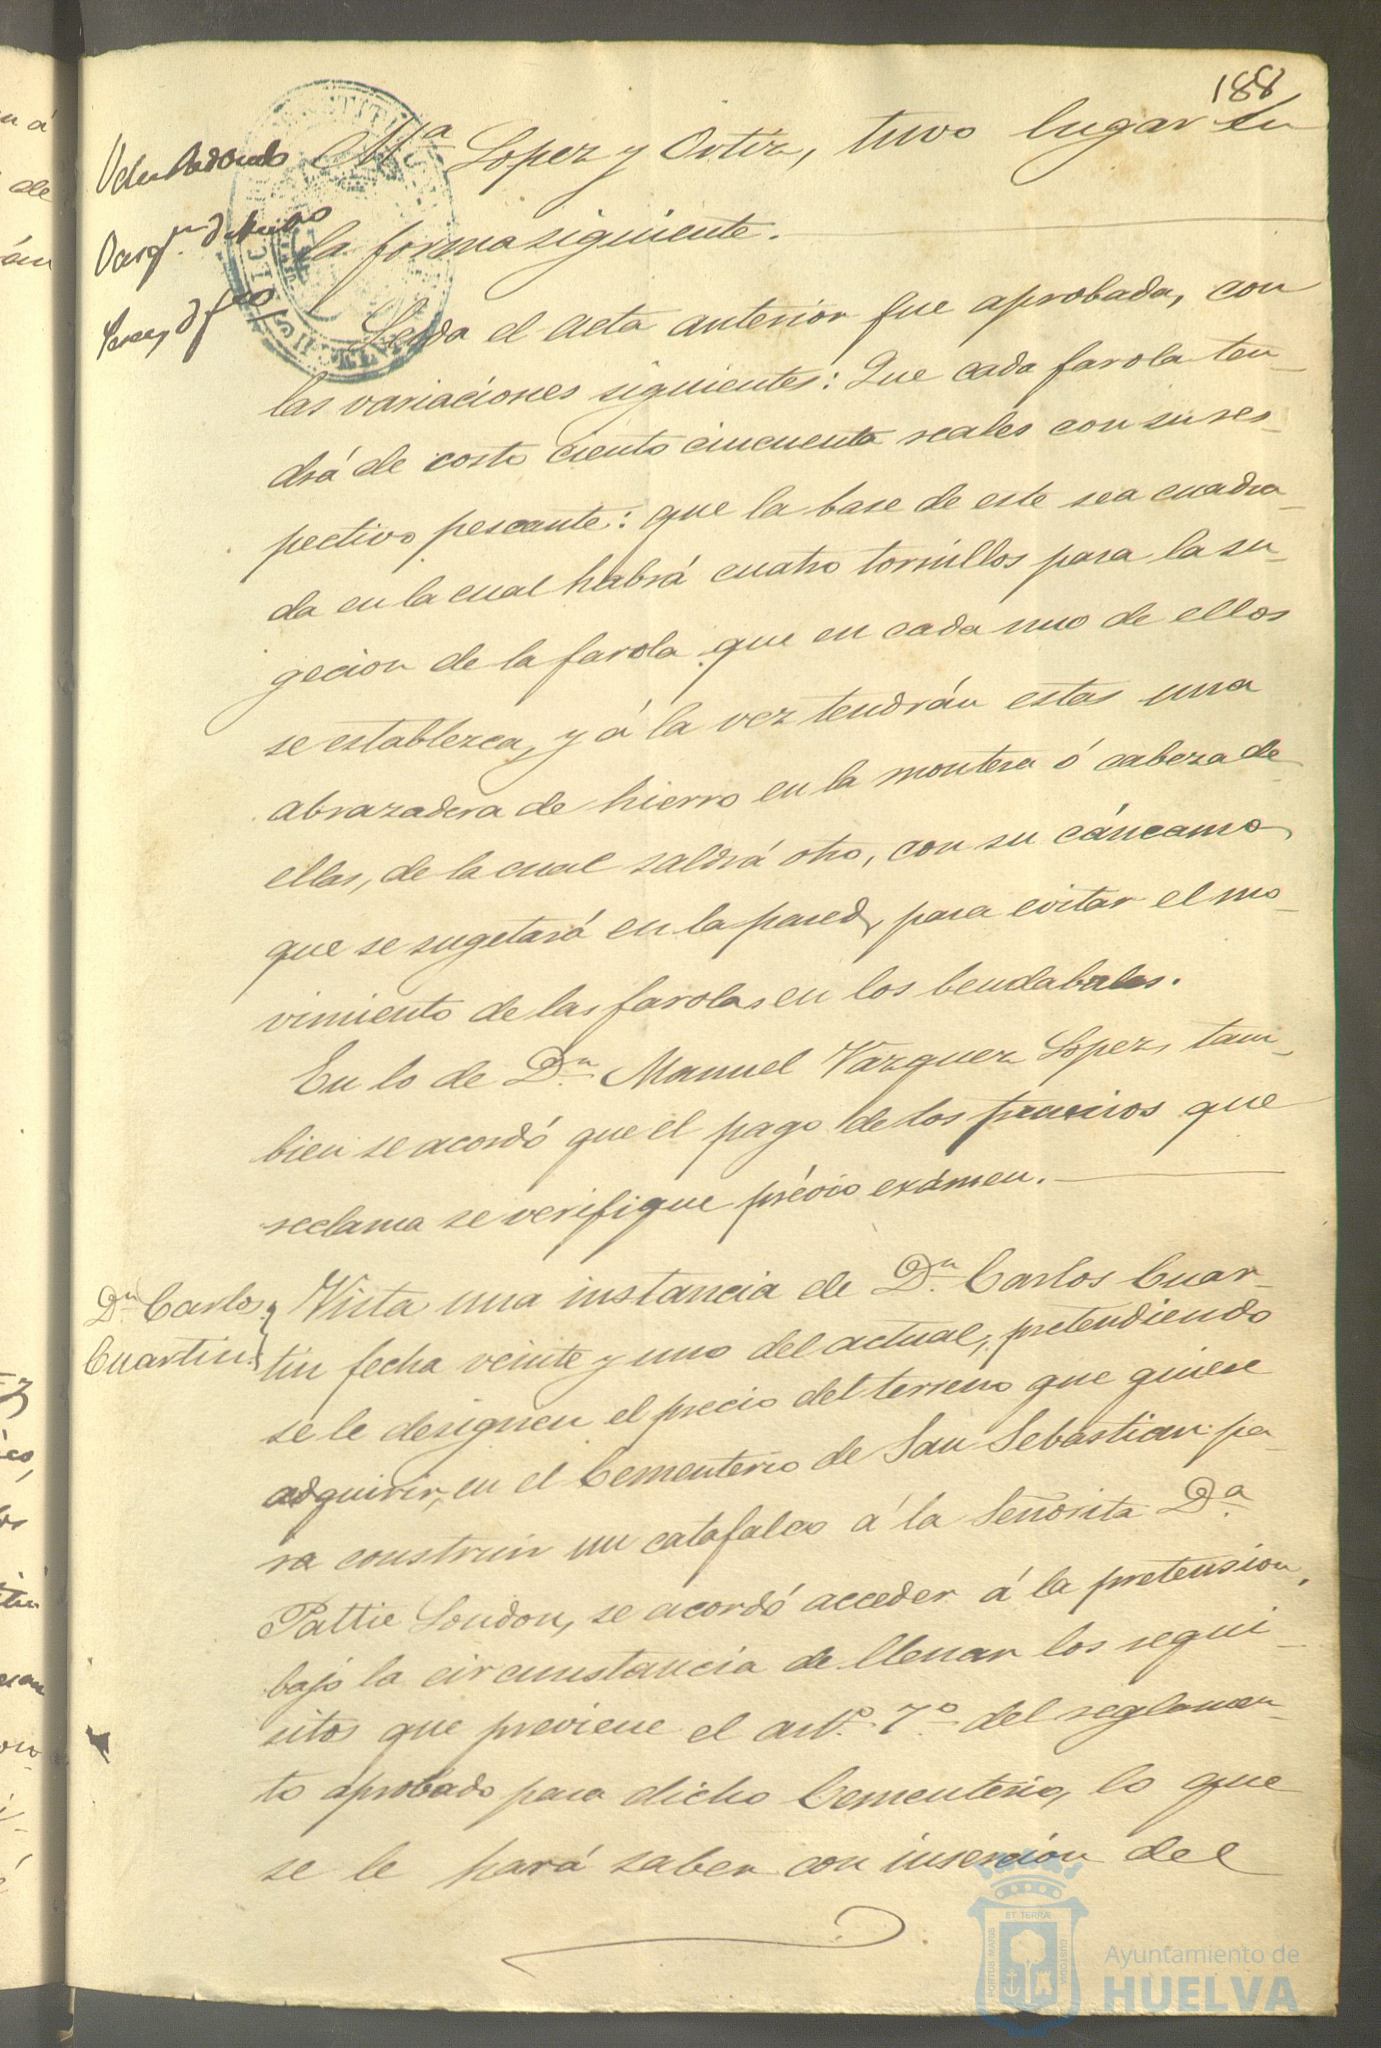 188
Mª Lopez y Ortiz, tuvo lugar en
la forma siguiente.
Leida el acta anterior fue aprobada, con
las variaciones siguientes: Que cada farola ten-
drá de costo ciento cincuenta reales con su res-
pectivo pescante: que la base de este sea cuadra-
da en la cual habrá cuatro tornillos para la su-
gecion de la farola que en cada uno de ellos
se establezca, y á la vez tendrán estas una
abrazadera de hierro en la montera ó cabeza de
ellas, de la cual saldrá otro, con su cáncamo
que se sugetará en la pared, para evitar el mo-
vimiento de las farolas en los bendabales.
En lo de Dn. Manuel Vazquez Lopez, tam-
bien se acordó que el pago de los que
reclama se verifique prévio exámen.
Dn Carlos
Cuartin
Vista una instancia de Dn. Carlos Cuar-
tin fecha veinte y uno del actual, pretendiendo
se le designen el precio del terreno que quiere
adquirir, en el Cementerio de San Sebastian pa-
ra construir un catafalco á la Señorita Dª.
Pattie London, se acordó acceder á la pretension,
bajo la circunstancia de llenar los requi-
sitos que previene el artº. 7º. del reglamen-
to aprobado para dicho Cementerio, lo que
se le hará saber con insercion del
Ayuntamiento de
HUELVA